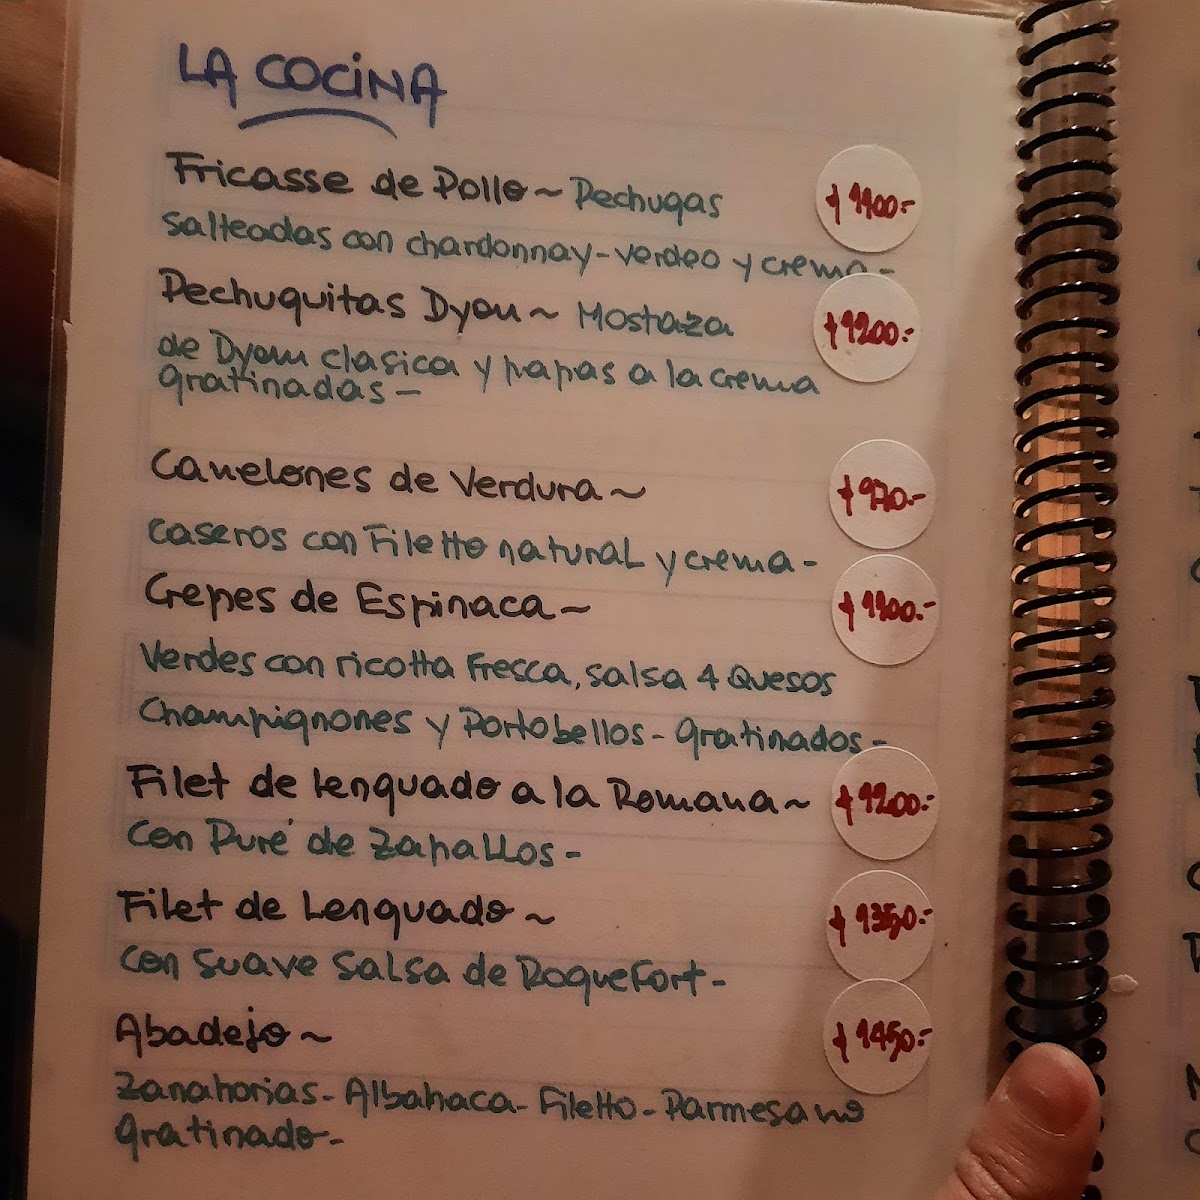 LA COCINA
Fricasse de Pollo ~ Pechugas $1100.-
salteadas con chardonnay - verdeo y crema -
Pechuguitas Dyon ~ Mostaza $1200.-
de Dyon clasica y papas a la crema
gratinadas -
Canelones de Verdura ~ $970.-
caseros con Filetto natural y crema -
Crepes de Espinaca ~ $1100.-
Verdes con ricotta Fresca, salsa 4 Quesos
Champignones y Portobellos - gratinados -
Filet de lenguado a la Romana ~ $1200.-
con Puré de Zapallos -
Filet de Lenguado ~ $1350.-
con suave salsa de Roquefort -
Abadejo ~ $1450.-
Zanahorias - Albahaca - Filetto - Parmesano
gratinado -